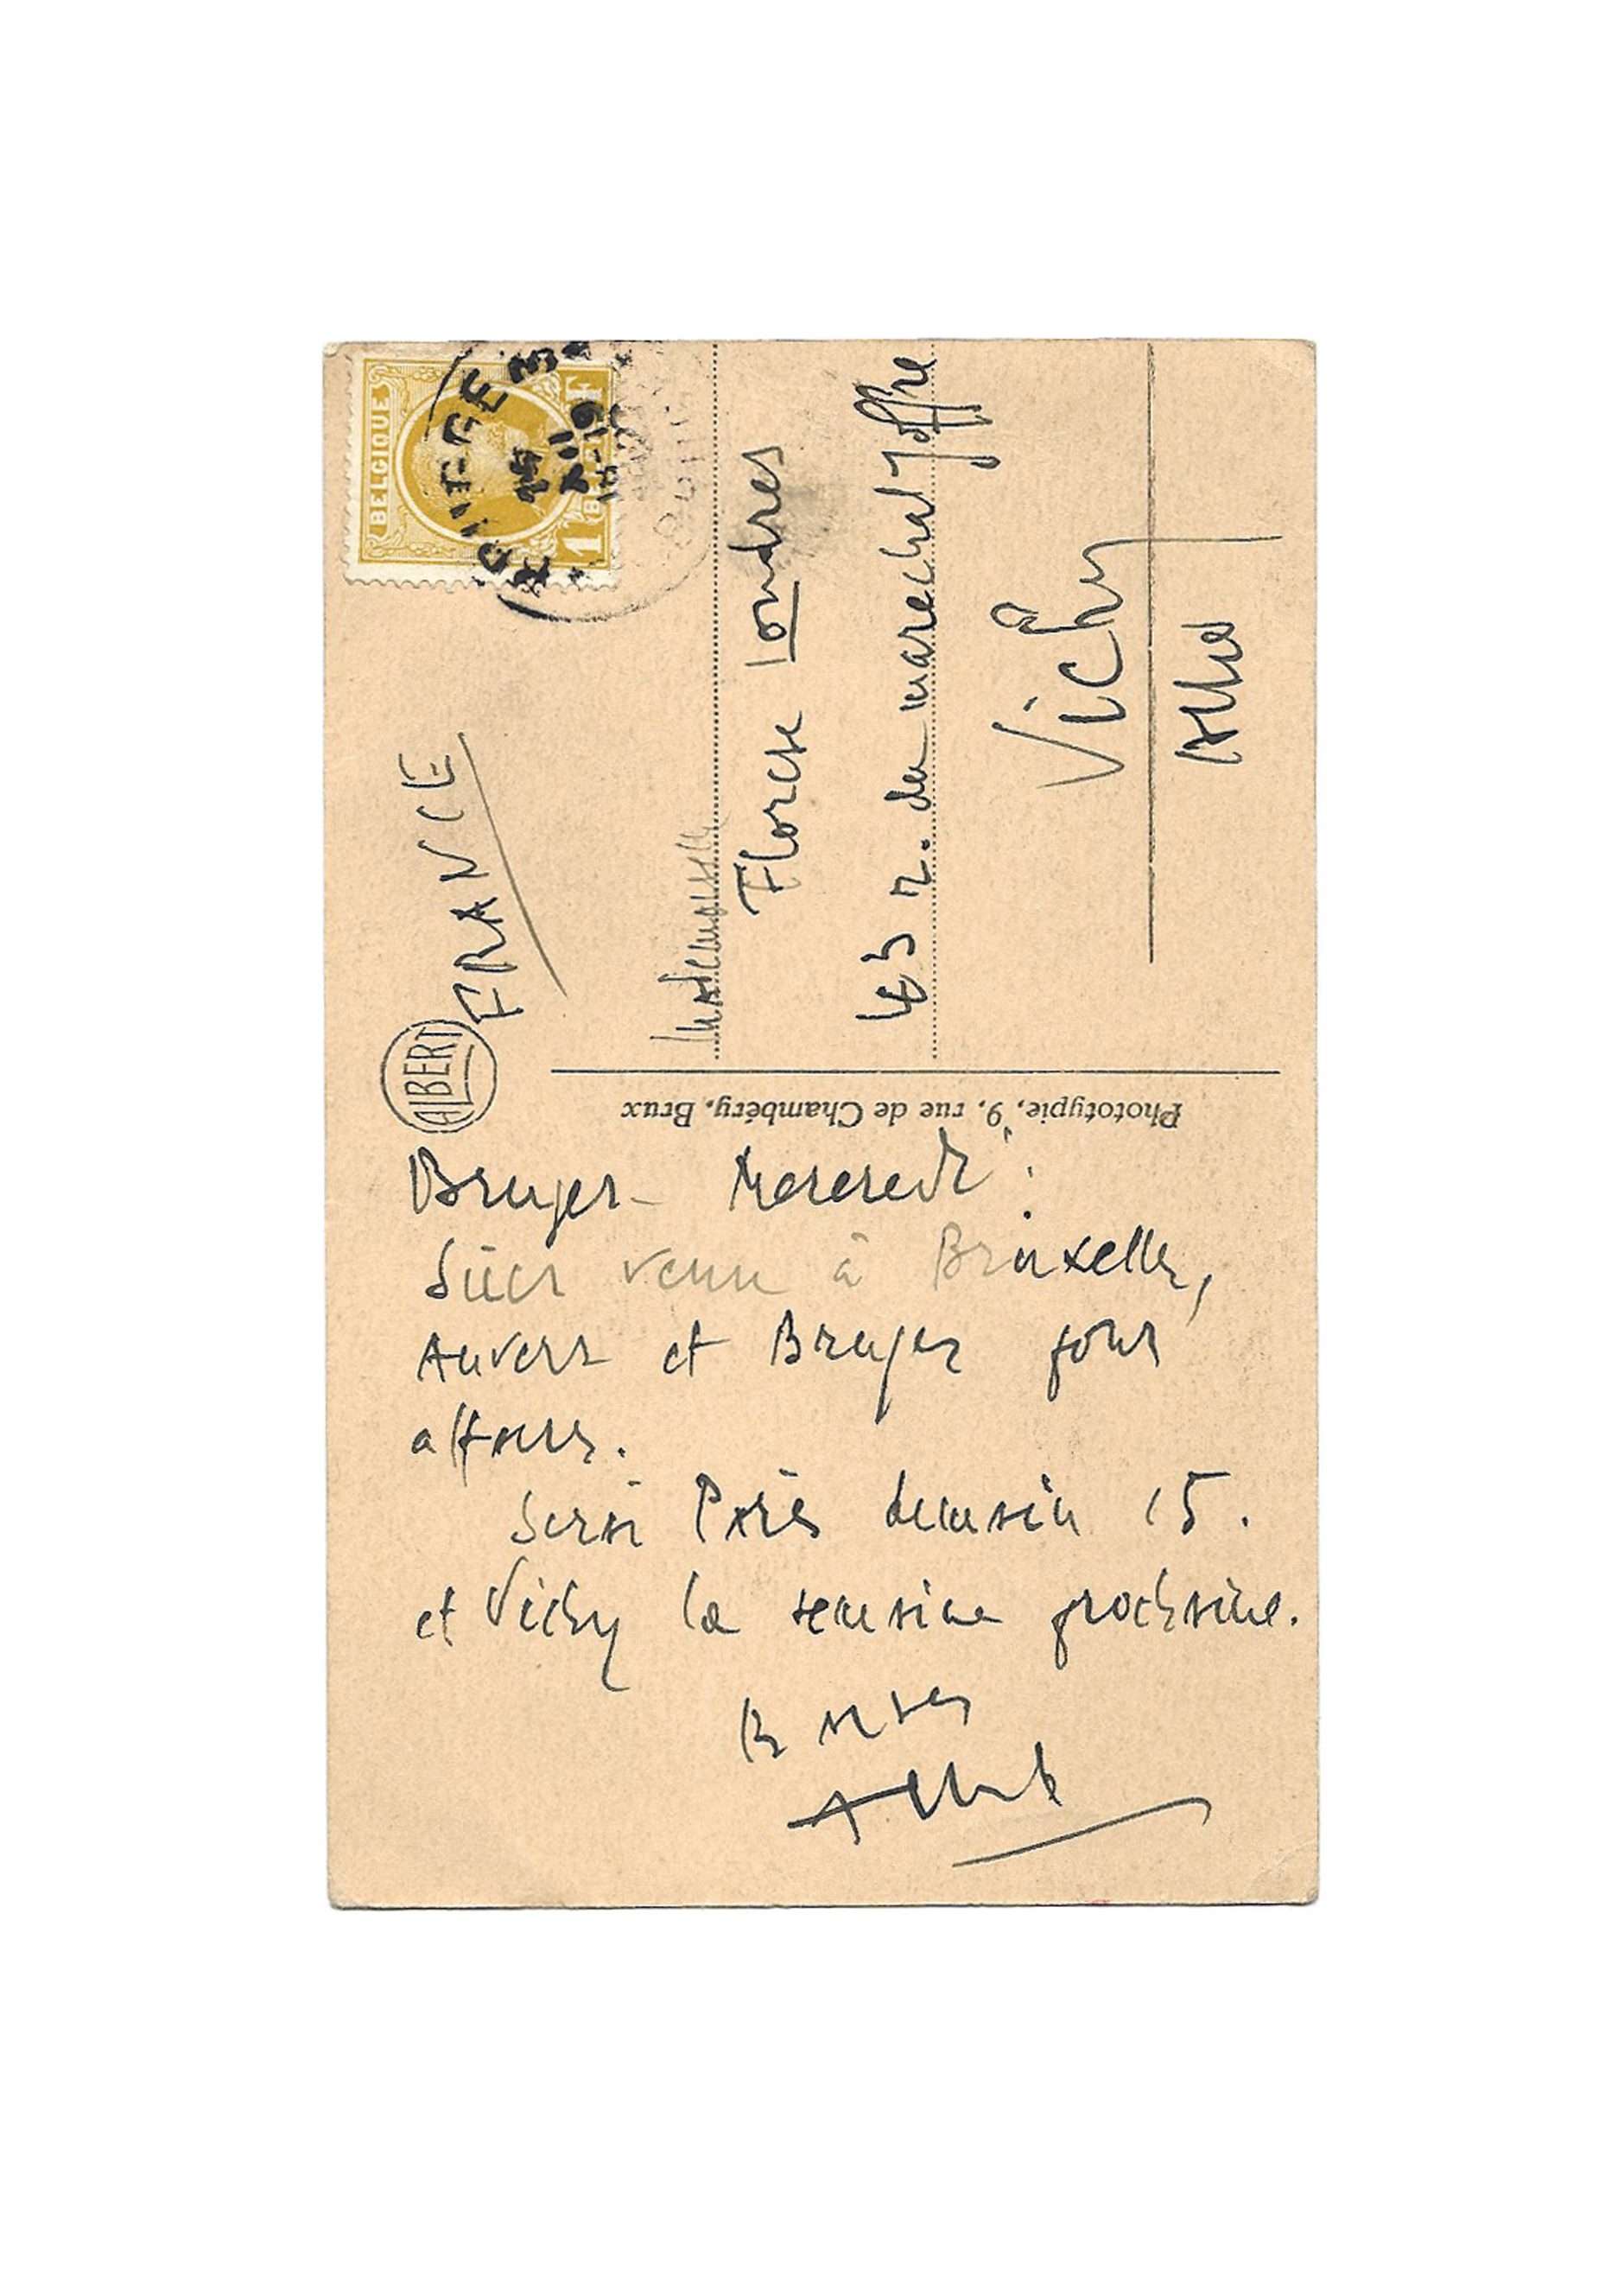 BELGIQUE
1F
1
ALBERT
FRANCE
Mademoiselle
Florise Londres
r. du marechal joffre
Vichy
Allier
Phototypie, 9, rue de Chambéry, Brux
Bruges - Mercredi :
Suis venu à Bruxelles,
Anvers et Bruges pour
affaires.
Serai Paris demain 15.
et Vichy la semaine prochaine.
Baisers
Albert